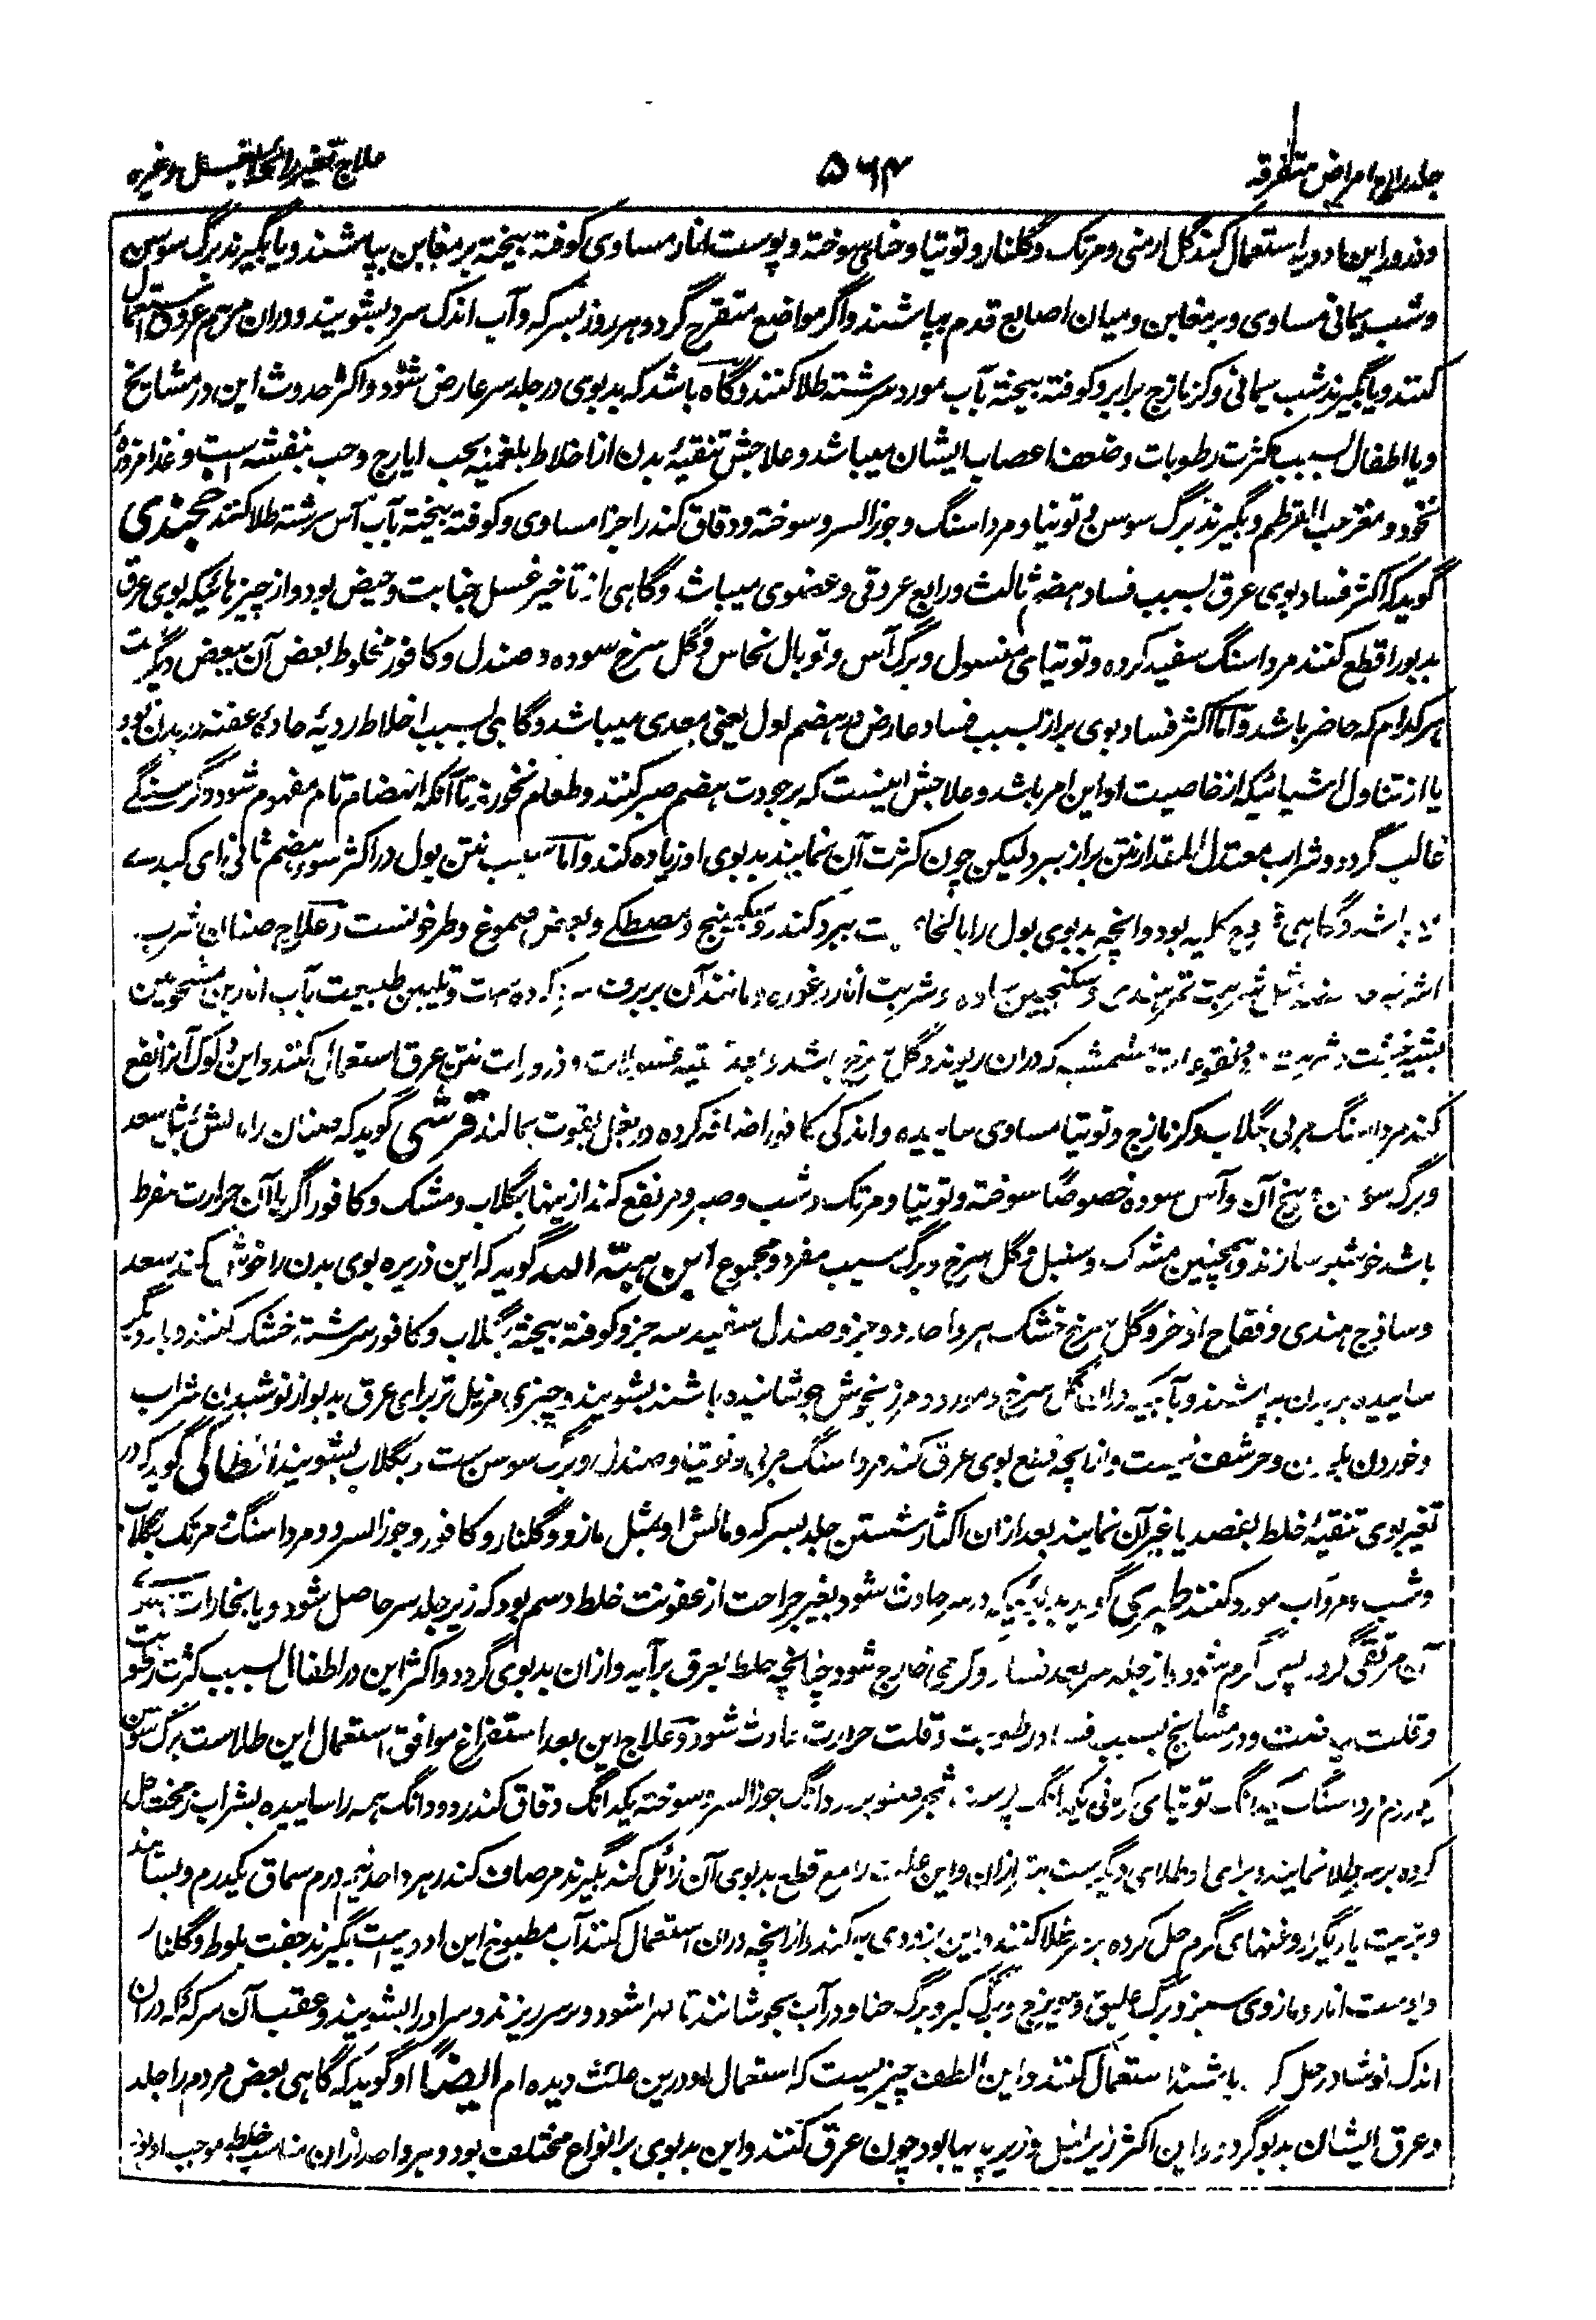 جلد رابع امراض متفرقه
۵۶۴
علاج تغیر رائحه بغل وغیره
و ذرور این ادویه استعمال کنند گل ارمنی و مرتک و گلنار و توتیا و حنای سوخته و پوست انار مساوی کوفته بیخته بر مغابن بپاشند و یا بگیرند برگ سوسن
و شب یمانی مساوی و بر مغابن و میان اصابع قدم بپاشند و اگر مواضع متقرح گردد هر روز بسرکه و آب اندک سرد بشویند و دران مرهم عروق استعمال
کنند و یا بگیرند شب یمانی و کزمازج برابر و کوفته بیخته بآب مورد سرشته طلا کنند و گاه باشد که بدبوی در جلد سر عارض شود و اکثر حدوث این در مشایخ
و یا اطفال بسبب کثرت رطوبات و ضعف اعصاب ایشان میباشد و علاجش تنقیهٔ بدن از اخلاط بلغمیه بحب ایارج و حب بنفشه است و غذا مزورهٔ
نخود و مغز حب القرطم و بگیرند برگ سوسن و توتیا و مرداسنگ و جوز السرو سوخته و دقاق کندر اجزا مساوی و کوفته بیخته بآب آس سرشته طلا کنند خجندی
گوید که اکثر فساد بوی عرق بسبب فساد هضم ثالث و رابع عروقی و عضوی میباشد و گاهی از تاخیر غسل جنابت و حیض بود و از چیزهائیکه بوی عرق
بدبو را قطع کنند مرداسنگ سفید کرده و توتیای مغسول و برگ آس و توبال نحاس و گل سرخ سوده و صندل و کافور مخلوط بعض آن ببعض دیگرست
هر کدام که حاضر باشد و اما اکثر فساد بوی براز بسبب فساد عارض در هضم اول یعنی معدی میباشد و گاهی بسبب اخلاط ردیهٔ حادهٔ عفنه در بدن بود
یا از تناول اشیائیکه از خاصیت او این امر باشد و علاجش اینست که بر جودت هضم صبر کنند و طعام نخورند تا آنکه انهضام تام مفهوم شود و گرسنگی
غالب گردد و شراب معتدل المقدار نتن براز ببرد لیکن چون کثرت آن نمایند بدبوی او زیاده کند و اما سبب نتن بول در اکثر سوء هضم ثانی ای کبدی
باشد و گاهی قروح کلیه بود و انچه بدبوی بول را بالخاصیت ببرد کندر و سکبینج و مصطکی و بعض صموغ و طرخونست و علاج صنان شرب
اشربه شل شربت تمرهندی و سکنجبین ساده و شربت انار و غوره و مانند آن ببرف سرد کرده و تلیین طبیعت بآب انارین مشحومین
شربت و نقوع مشمش که دران ریوند و گل سرخ باشد و بعد تنقیه غسولات و ذرورات نتن عرق استعمال کنند و این دلوک آنرا نفع
کند مرداسنگ مربی بگلاب و کزمازج و توتیا مساوی ساییده و اندکی کافور اضافه کرده در بغل بقوت بمالند قرشی گوید که صنان را مالش مثل سعد
و برگ سوسن و بیخ آن و آس سوده خصوصا سوخته و توتیا و مرتک و شب و صبر و مر نفع کند از ینها بگلاب و مشک و کافور اگر با آن حرارت مفرط
باشد خوشبو سازند و همچنین مشک و سنبل و گل سرخ و برگ سیب مفرد و مجموع ابن هبة الله گوید که این ذریره بوی بدن را خوش کند سعد
و ساذج هندی و فقاح اذخر و گل سرخ خشک هر واحد دو جزو صندل سفید سه جزو کوفته بیخته بگلاب و کافور سرشته خشک کنند و بار دیگر
ساییده بر بدن بپاشند و بآبیکه دران گل سرخ و مورد و مرزنجوش جوشانیده باشند بشویند و چیزی مزیل تر برای عرق بدبو از نوشیدن شراب
و خوردن هلیون و حرشف نیست و از انچه قطع بوی عرق کند مرداسنگ مربی و توتیا و صندل و برگ سوسن ست و بگلاب بشویند انطاکی گوید که در
تغیر بوی تنقیهٔ خلط بفصد یا غیر آن نمایند بعد ازان اکثار شستن جلد بسرکه و مالش او بمثل مازو و گلنار و کافور و جوز السرو و مرداسنگ و مرتک بگلاب
و شب و مر و آب مورد کنند طبری گوید که در سر حادث شود بغیر جراحت از عفونت خلط دسم بود که زیر جلد سر حاصل شود و یا بخارات
آن مرتقی گردد پس گرم شود و از جلد سر بعد فساد و گرمی خارج شود چنانچه خلط بعرق برآید و ازان بدبوی گردد و اکثر این در اطفال بسبب کثرت رطوبت
و قلت و در مشایخ بسبب فساد رطوبت و قلت حرارت حادث شود و علاج این بعد استفراغ موافق استعمال این طلاست برگ سوسن
یکدرم مرداسنگ یکدانگ توتیای کرمانی یکدانگ پوست شجر صنوبر دو دانگ جوز السرو سوخته یکدانگ دقاق کندر دو دانگ همه را ساییده بشراب پخته حل
کرده بر سر طلا نمایند و برای او طلای دیگرست به ازان و این علت را مع قطع بدبوی آن زائل کند بگیرند مر صاف کندر هر واحد نیم درم سماق یکدرم و بسایند
و بزیت یا دیگر روغنهای گرم حل کرده بر سر طلا کنند و این بزودی به کند و از انچه دران استعمال کنند آب مطبوخ این ادویه ست بگیرند جفت بلوط و گلنار
و پوست انار و مازوی سبز و برگ علیق و مویزج و برگ کبر و برگ حنا و در آب بجوشانند تا مهرا شود و بر سر ریزند و سر او را بشویند و عقب آن سرکه که دران
اندک نوشادر حل کرده باشند استعمال کنند و این الطف چیزیست که استعمال او درین علت دیده ام ایضًا او گوید که گاهی بعض مردم را جلد
و عرق ایشان بدبو گردد و این اکثر زیر بغل و زیر پیها بود چون عرق کنند و این بدبوی بر انواع مختلف بود و هر واحد ازان مناسب خلط موجب او بود